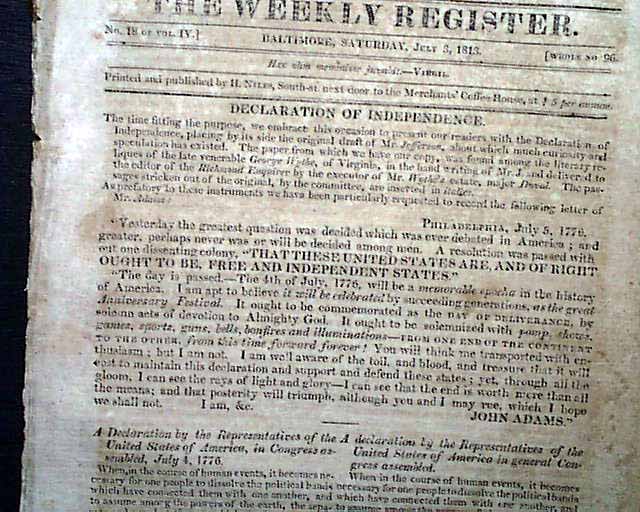 THE WEEKLY REGISTER.
No. 18 OF VOL. IV.] BALTIMORE, SATURDAY, JULY 3, 1813. [WHOLE NO. 96.
Hæc olim meminisse juvabit.—VIRGIL.
Printed and published by H. NILES, South-st. next door to the Merchants' Coffee House, at $ 5 per annum.
DECLARATION OF INDEPENDENCE.
The time fitting the purpose, we embrace this occasion to present our readers with the Declaration of
Independence, placing by its side the original draft of Mr. Jefferson, about which much curiosity and
speculation has existed. The paper from which we have our copy, was found among the literary re-
liques of the late venerable George Wythe, of Virginia, in the hand writing of Mr. J. and deliver'd to
the editor of the Richmond Enquirer by the executor of Mr. Wythe's estate, major Duval. The pas-
sages stricken out of the original, by the committee, are inserted in italics.
As prefatory to these instruments we have been particularly requested to record the following letter of
Mr. Adams:
PHILADELPHIA, July 5, 1776.
"Yesterday the greatest question was decided which was ever debated in America; and
greater, perhaps never was or will be decided among men. A resolution was passed with
out one dissenting colony, "THAT THESE UNITED STATES ARE, AND OF RIGHT
OUGHT TO BE, FREE AND INDEPENDENT STATES."
"The day is passed.—The 4th of July, 1776, will be a memorable epocha in the history
of America. I am apt to believe it will be celebrated by succeeding generations, as the great
Anniversary Festival. It ought to be commemorated as the DAY OF DELIVERANCE, by
solemn acts of devotion to Almighty God. It ought to be solemnized with pomp, shows,
games, sports, guns, bells, bonfires and illuminations—FROM ONE END OF THE CONTINENT
TO THE OTHER, from this time forward forever! You will think me transported with en-
thusiasm; but I am not. I am well aware of the toil, and blood, and treasure that it will
cost to maintain this declaration and support and defend these states; yet, through all the
gloom, I can see the rays of light and glory—I can see that the end is worth more than all
the means; and that posterity will triumph, although you and I may rue, which I hope
we shall not. I am, &c.
JOHN ADAMS."
A Declaration by the Representatives of the
United States of America, in Congress as-
sembled, July 4, 1776.
When, in the course of human events, it becomes ne-
cessary for one people to dissolve the political bands
which have connected them with one another, and
to assume among the powers of the earth, the sepa-
A declaration by the Representatives of the
United States of America in general Con-
gress assembled.
When in the course of human events, it becomes
necessary for one people to dissolve the political bands
which have connected them with another, and
to assume among